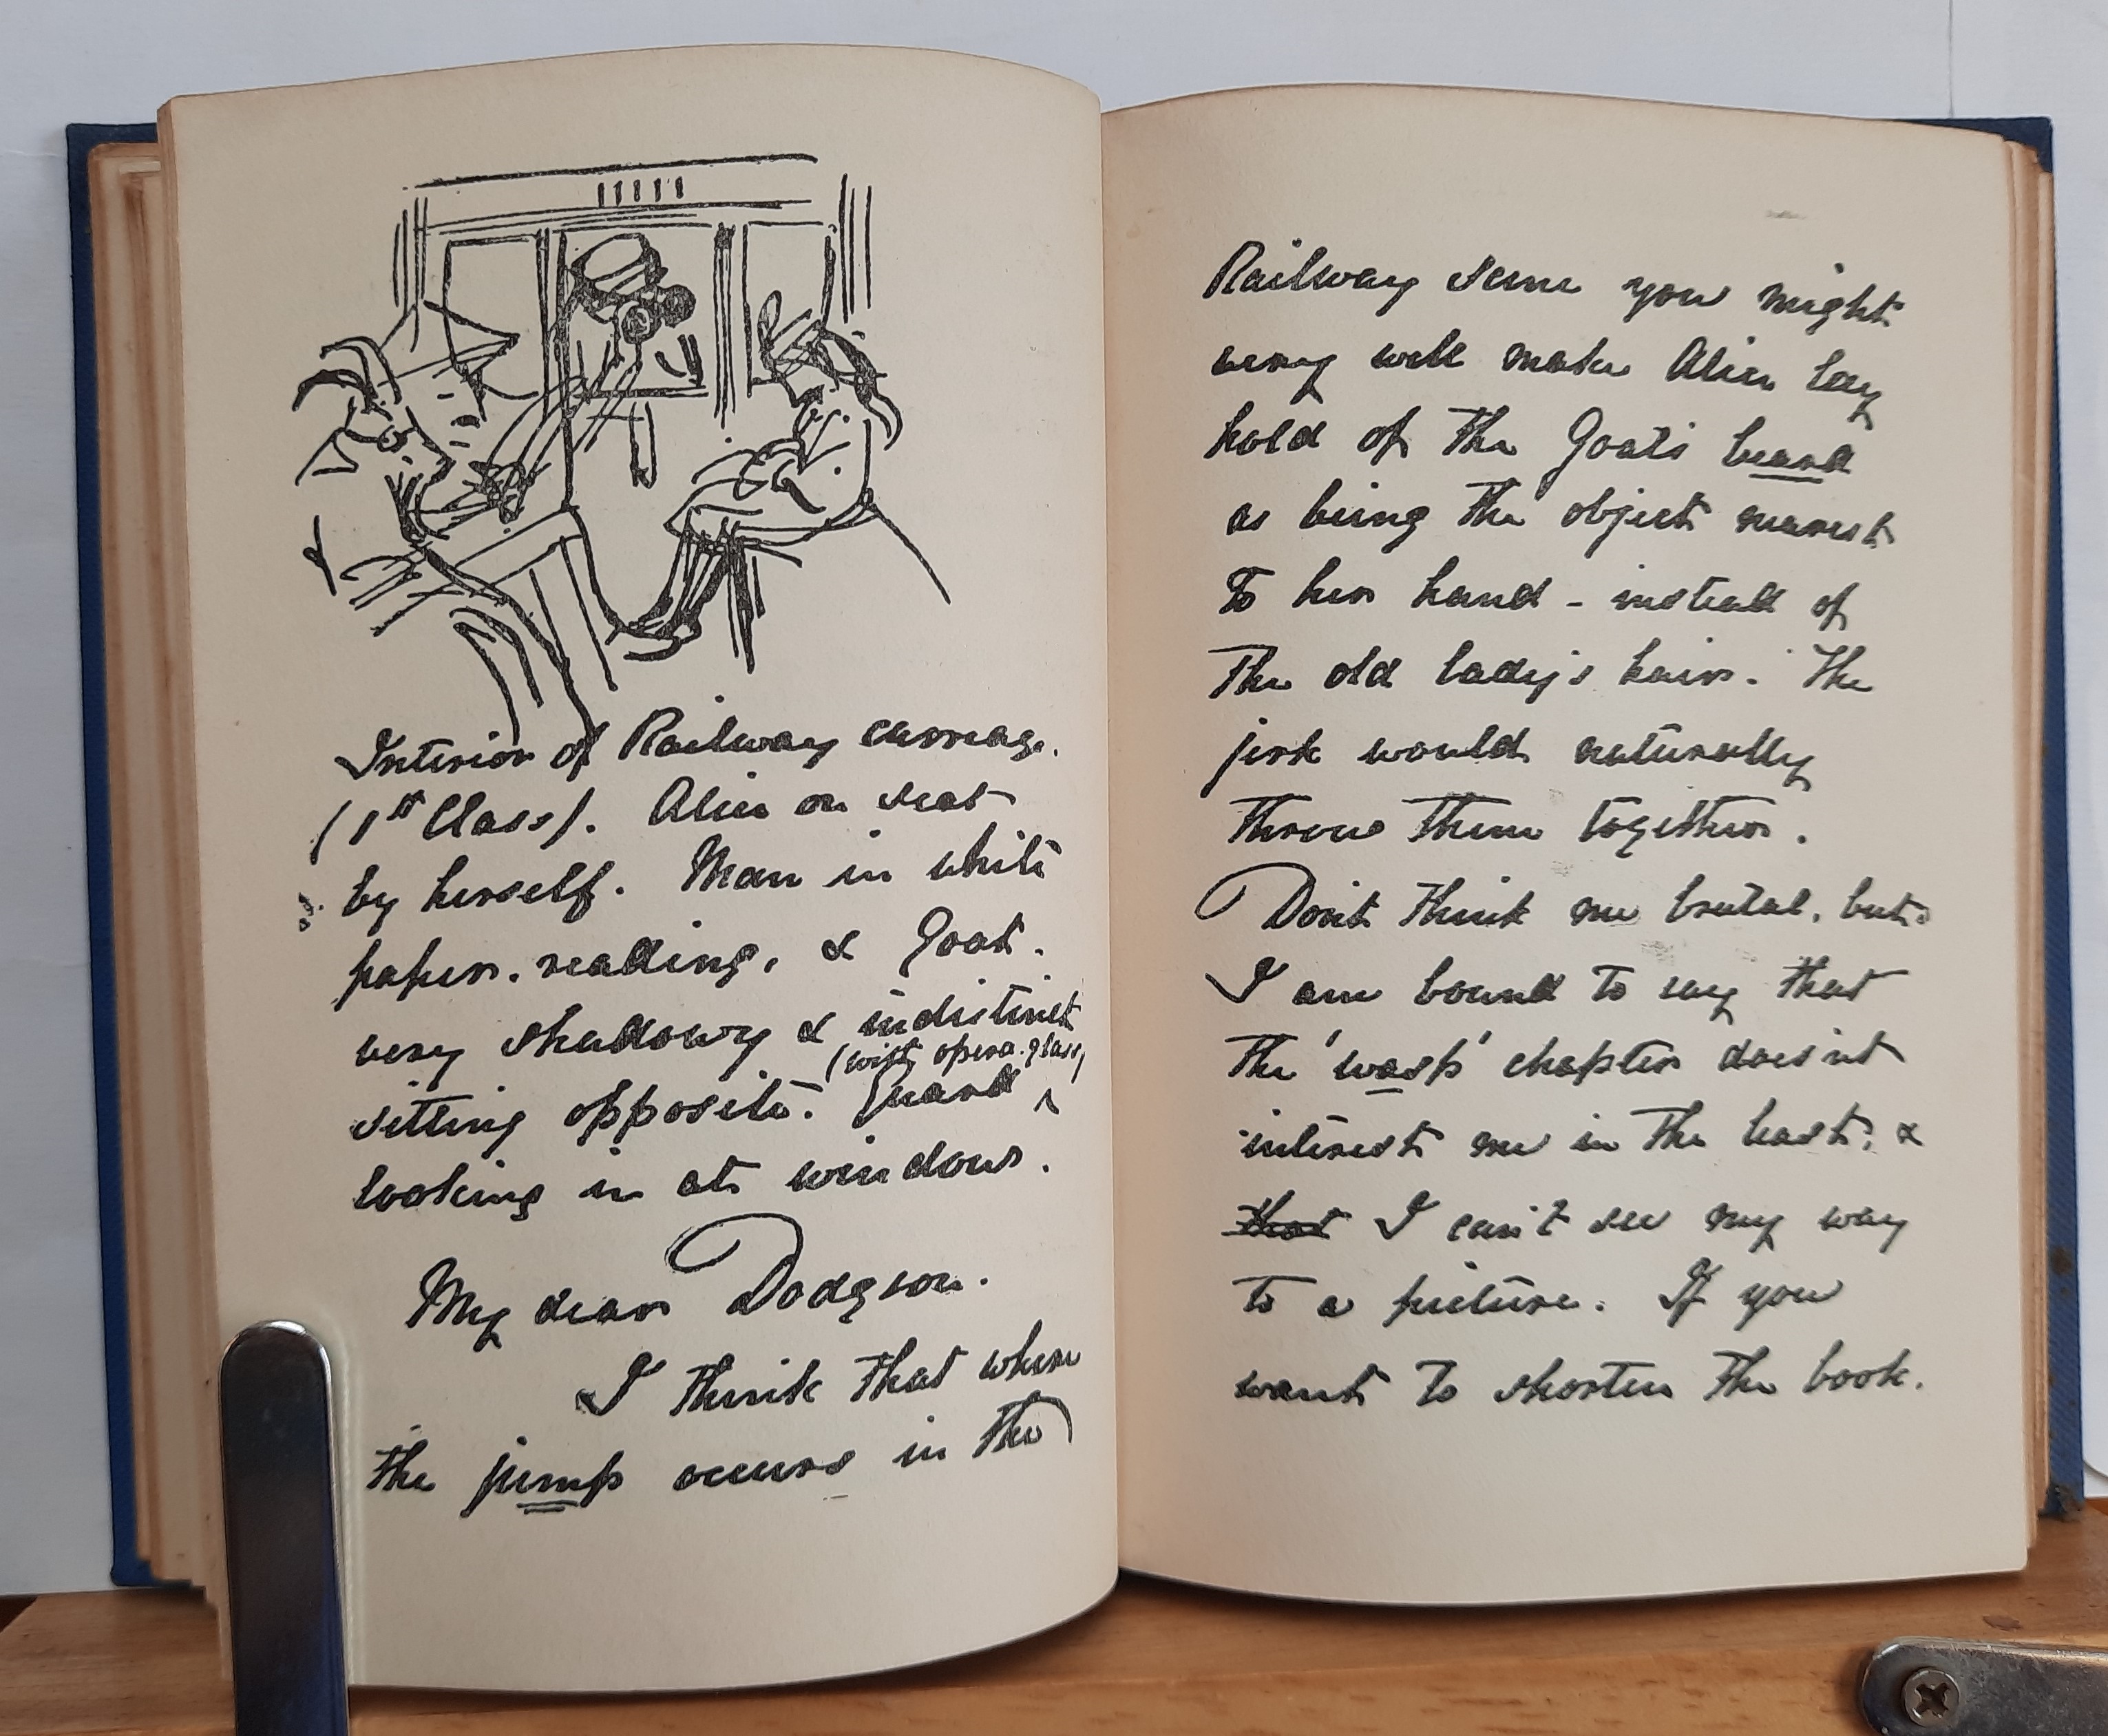 Interior of Railway carriage.
(1st Class). Alice on seat
by herself. Man in white
paper. reading, & Goat.
very shadowy & indistinct
(with opera-glass)
sitting opposite. Guard ^
looking in at window.
My dear Dodgson.
I think that when
the jump occurs in the
Railway scene you might
very well make Alice lay
hold of the Goat's beard
as being the object nearest
to her hand - instead of
the old lady's hair. The
jerk would naturally
throw them together.
Don't think me brutal, but
I am bound to say that
the 'wasp' chapter doesn't
interest me in the least, &
that I can't see my way
to a picture. If you
want to shorten the book.